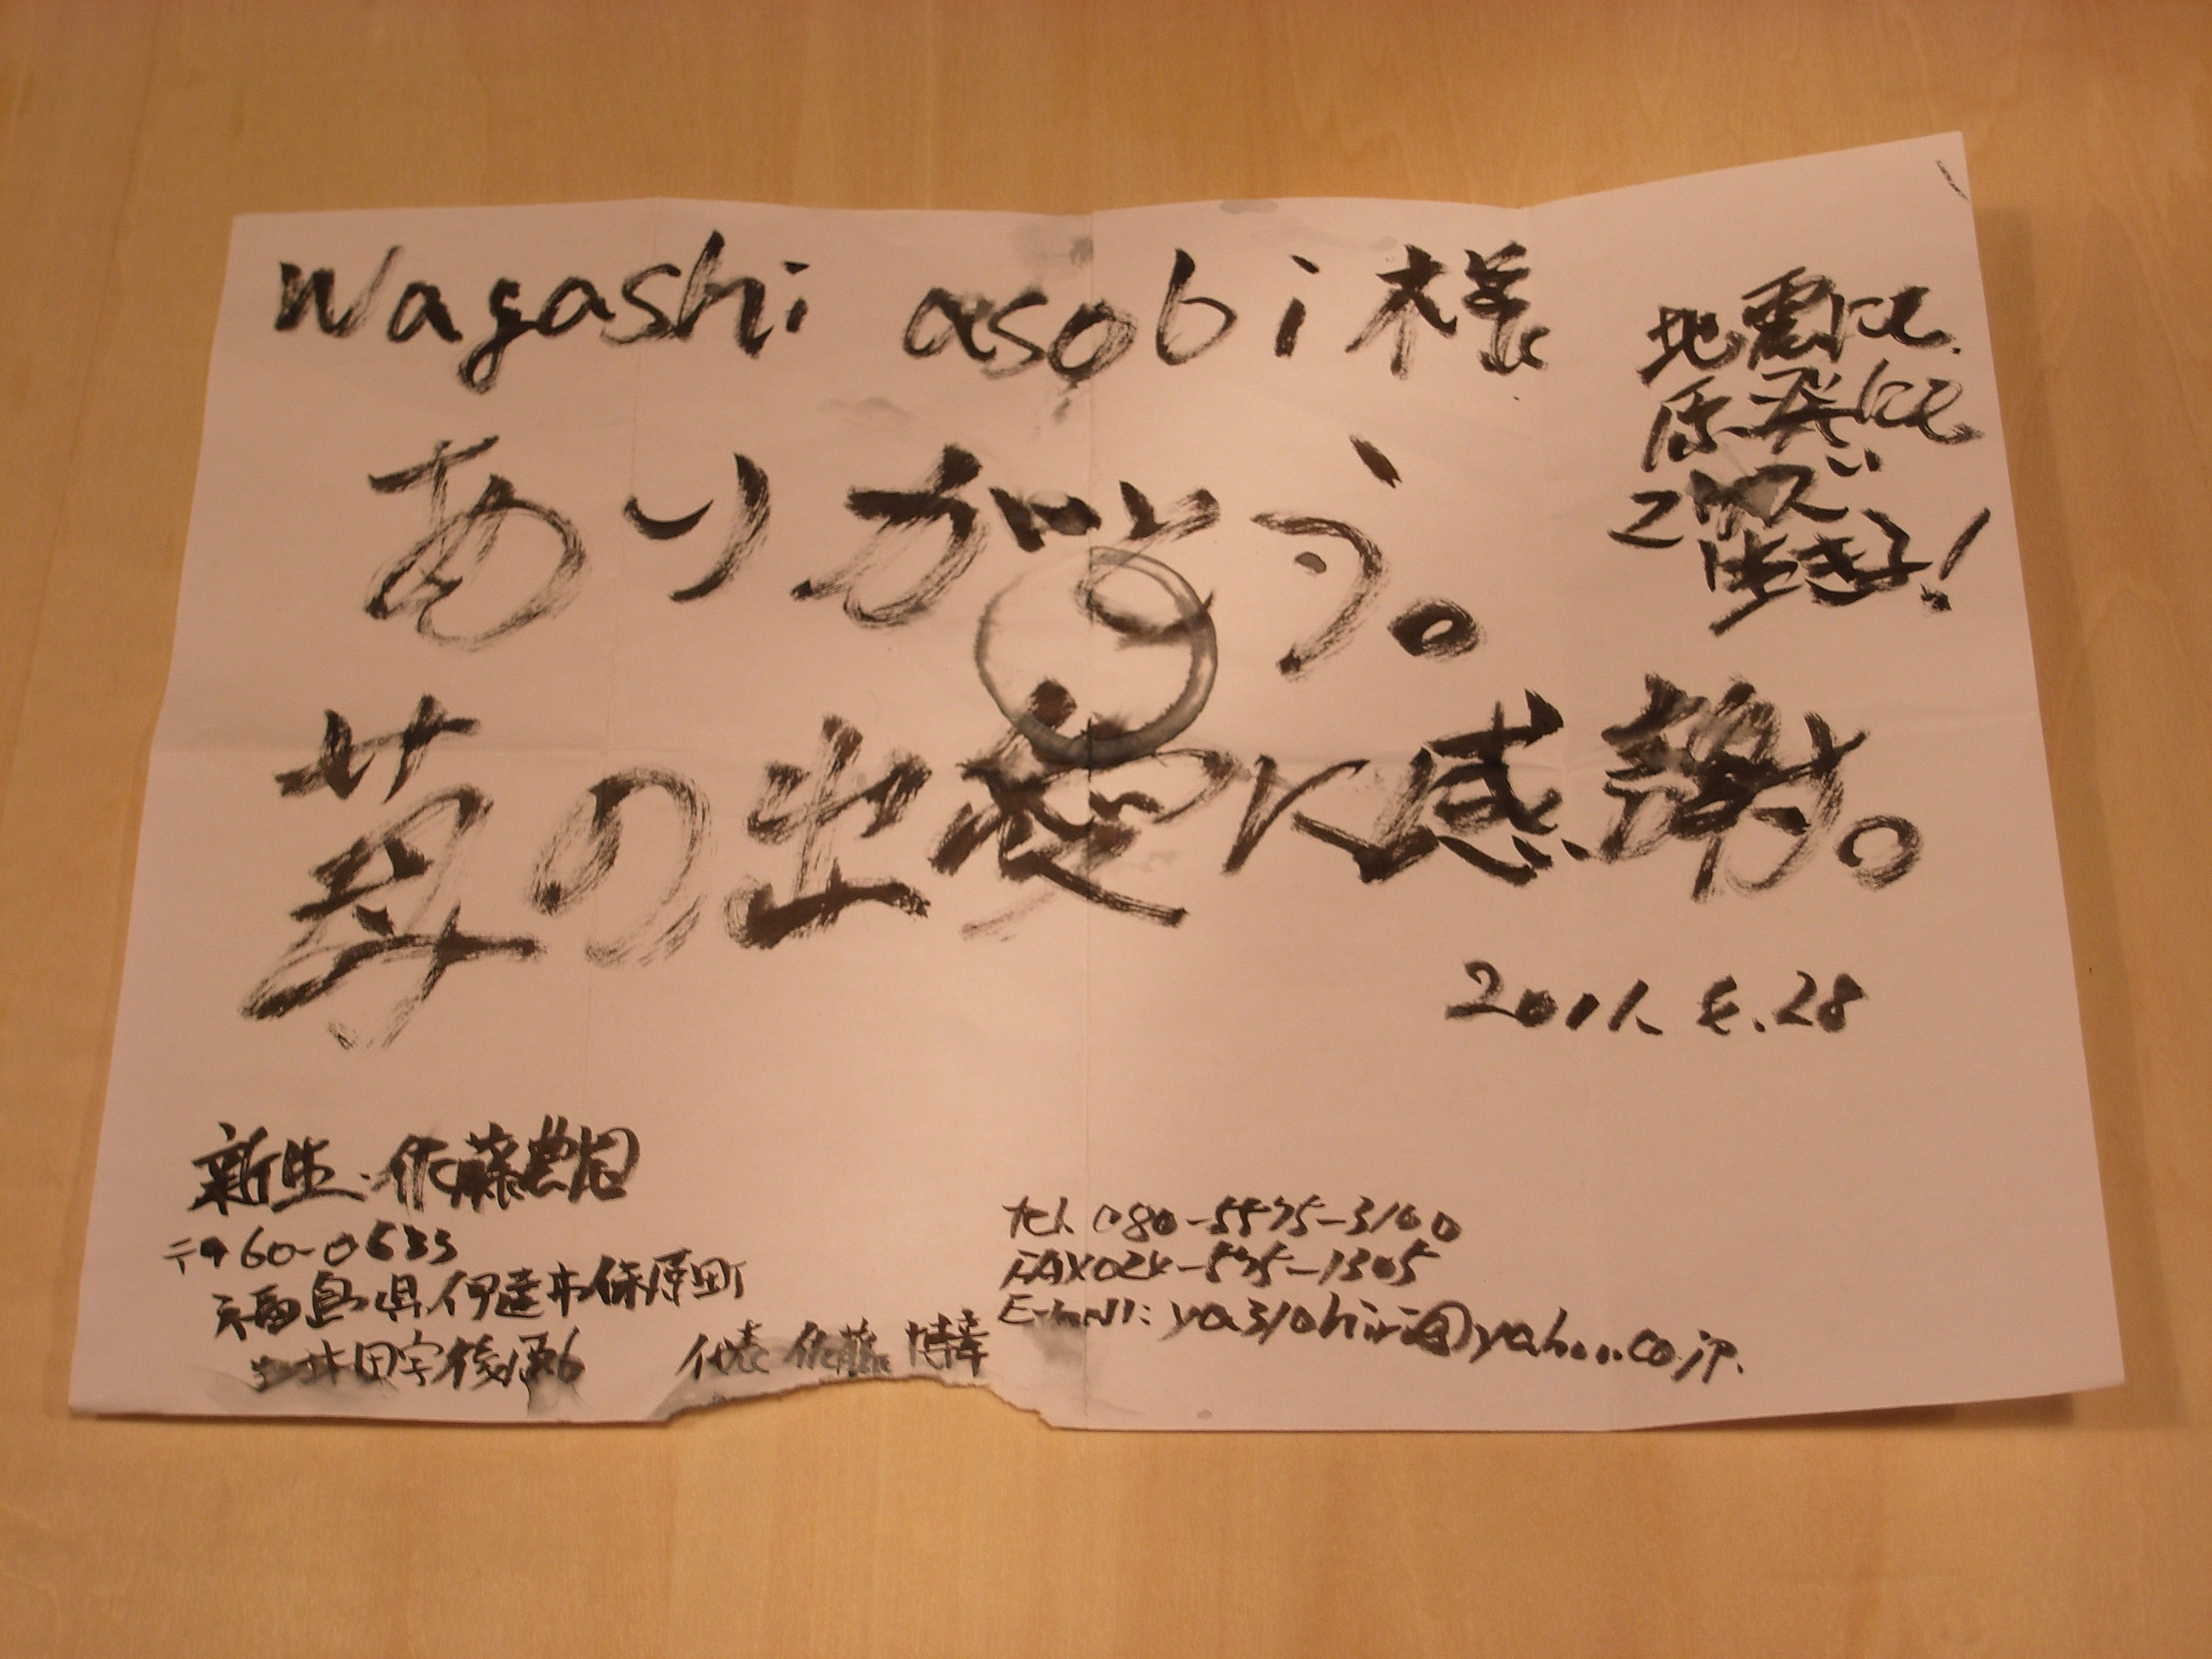 wagashi asobi 様
地震にも
原発にも
マケズ
生きる!
ありがとう。
苺の出愛に感謝。
2011. 4. 28
新生・佐藤農園
〒960-0633
福島県伊達市保原町
井田字後原6
代表 佐藤 博幸
tel. 080-5575-3160
FAX024-575-1305
E-mail: ya310hiri@yahoo.co.jp.